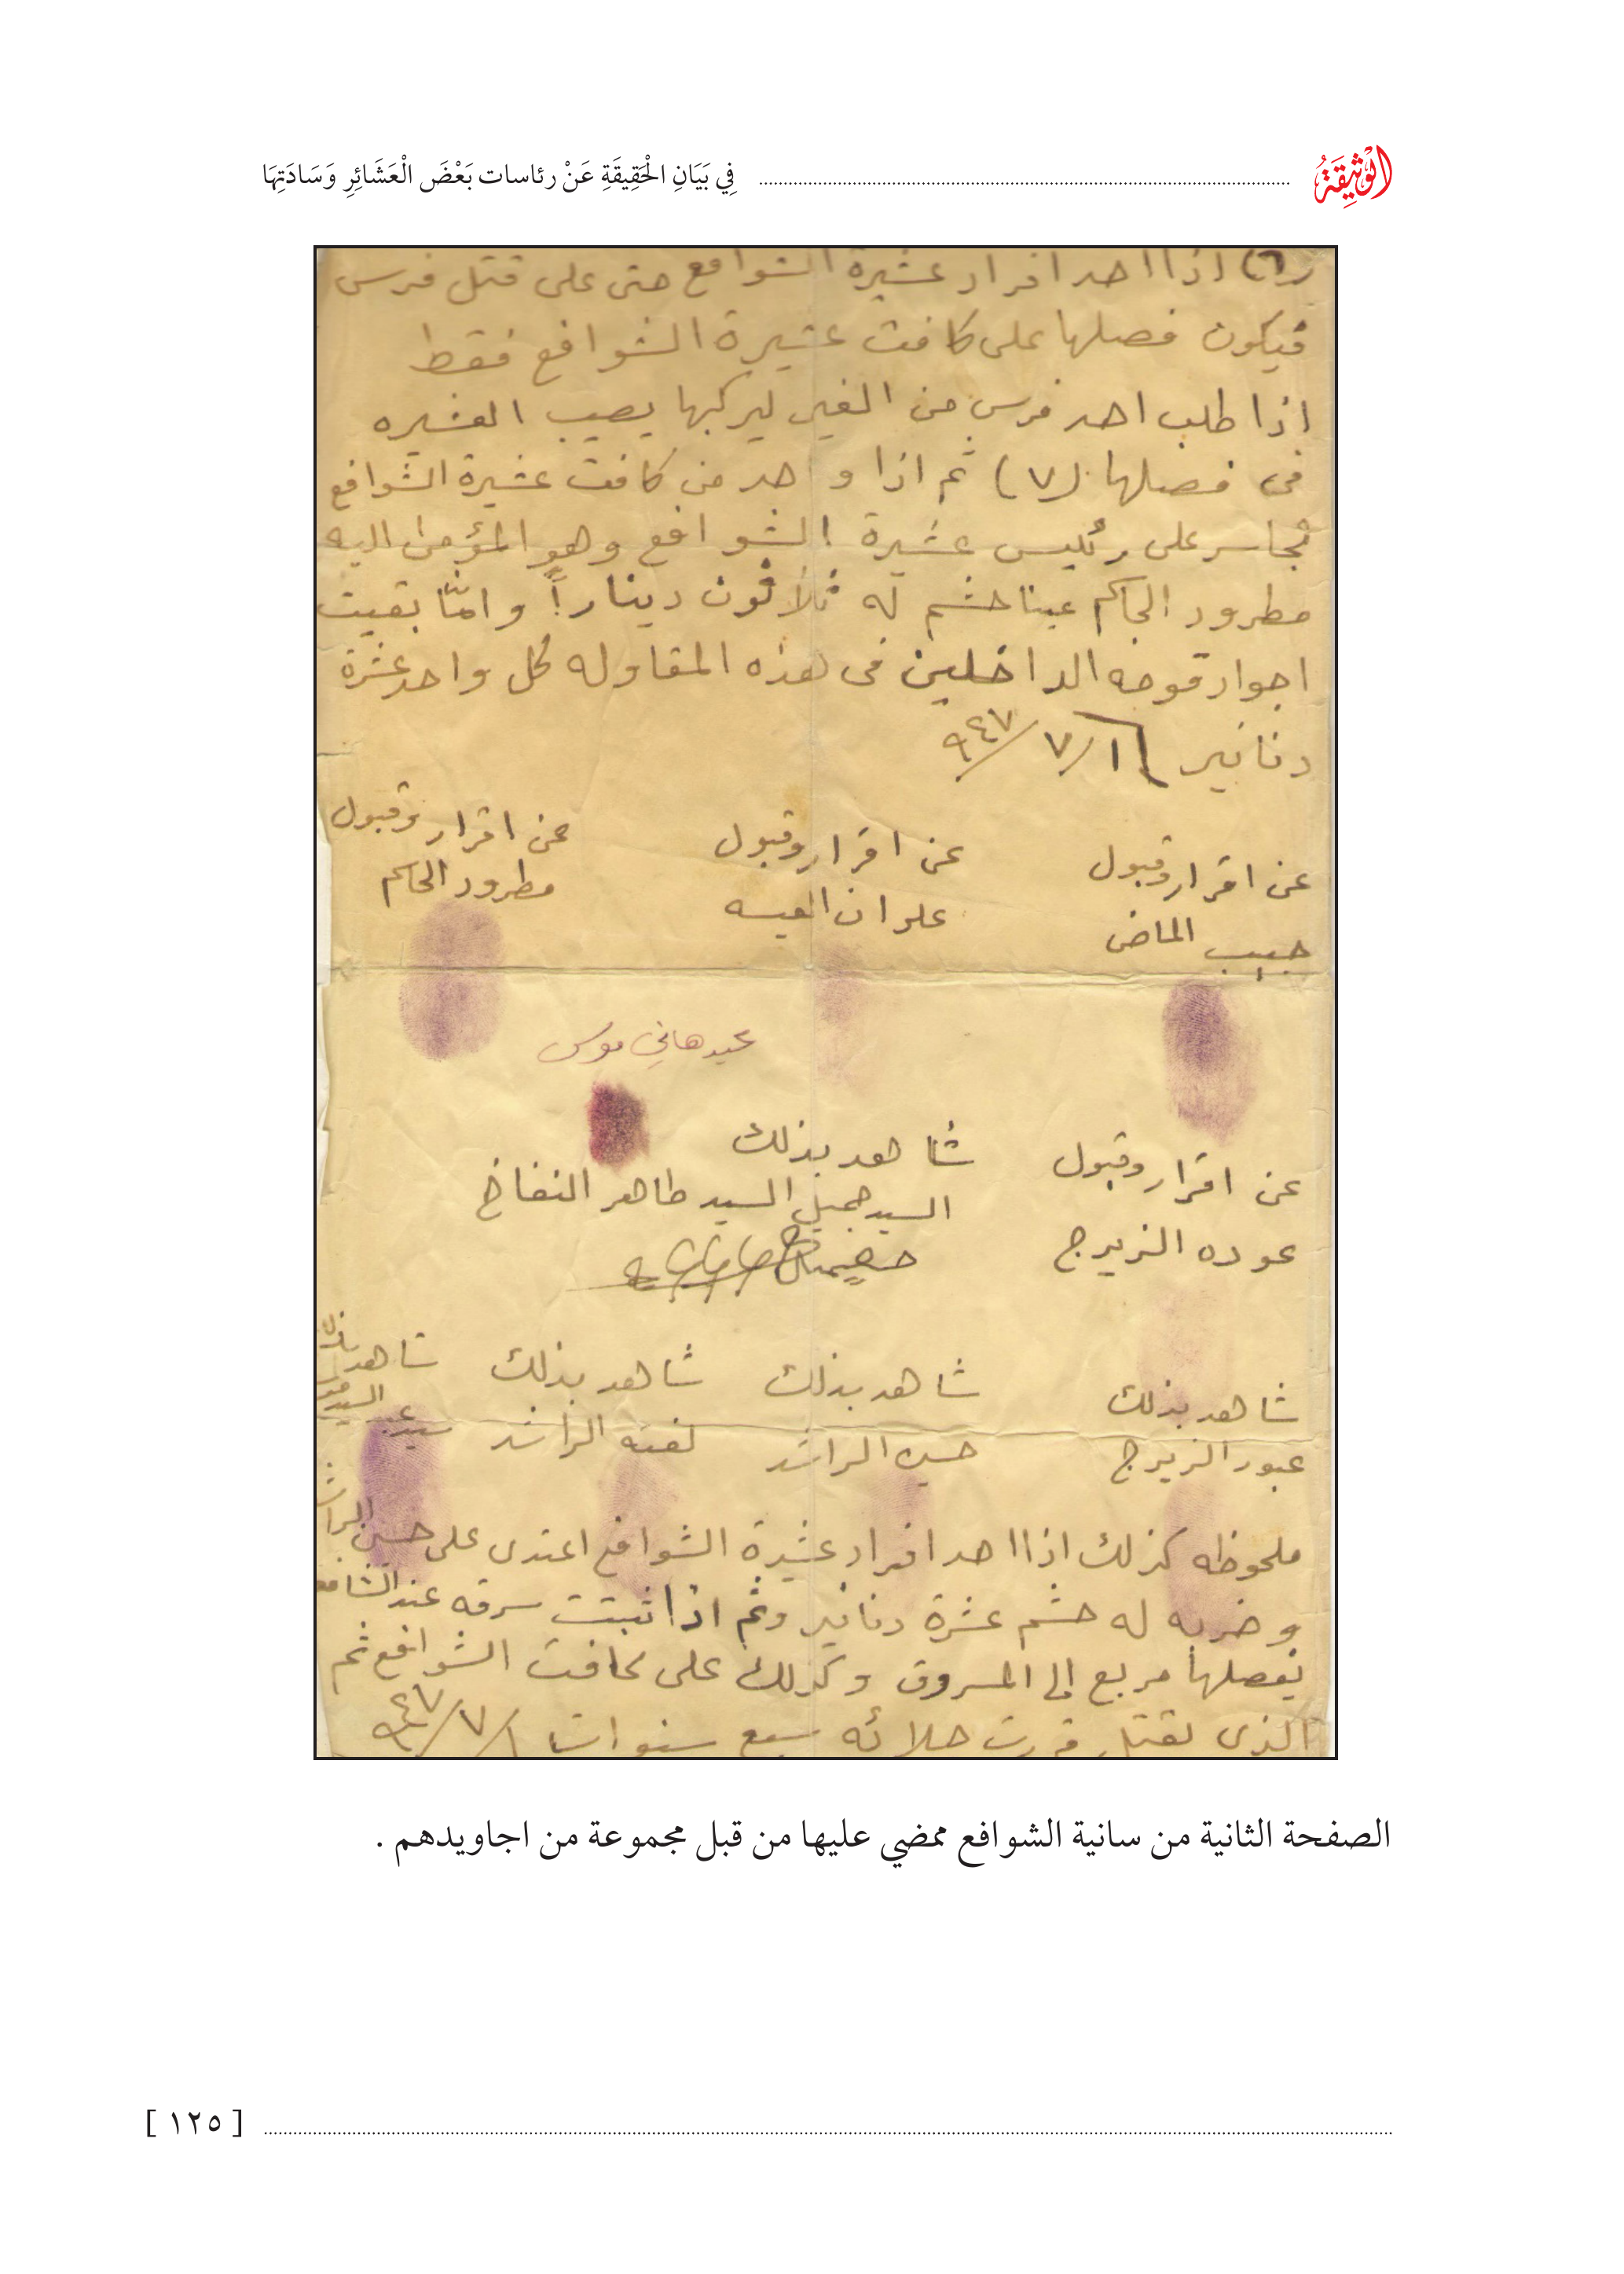 الوَثِيقَةُ
فِي بَيَانِ الْحَقِيقَةِ عَنْ رئاسات بَعْضَ الْعَشَائِرِ وَسَادَتِهَا
(٦) اذا احد افراد عشيرة الشوافع حتى على قتل فرس
فيكون فصلها على كافت عشيرة الشوافع فقط
اذا طلب احد فرس من الغير ليركبها يصيب العشيره
في فصلها (٧) ثم اذا واحد من كافت عشيرة الشوافع
تجاسر على رئيس عشيرة الشوافع وهو المؤمى اليه
مطرود الحاكم عينا حشم له ثلاثون ديناراً وامّا بقيت
اجوار قومه الداخلين في هذه المقاوله لكل واحد عشرة
دنانير ١/٧/٩٤٧
عن اقرار وقبول
حبيب الماضي
عن اقرار وقبول
علوان العيسه
عن اقرار وقبول
مطرود الحاكم
عبد هاني موسى
عن اقرار وقبول
عوده الزيرج
شاهد بذلك
السيد جميل السيد طاهر النفاخ
شاهد بذلك
عبود الزيرج
شاهد بذلك
حسين الراشد
شاهد بذلك
لفته الراشد
شاهد بذلك
ملحوظه كذلك اذا احد افراد عشيرة الشوافع اعتدى على حسين الراشد
وضربه له حشم عشرة دنانير وثم اذا ثبتت سرقه عند الشافعي
يفصلها مربع الى المسروق وكذلك على كافت الشوافع ثم
الذي يقتل جلائه سبع سنوات ١/٧/٩٤٧
الصفحة الثانية من سانية الشوافع ممضي عليها من قبل مجموعة من اجاويدهم .
[ ١٢٥ ]